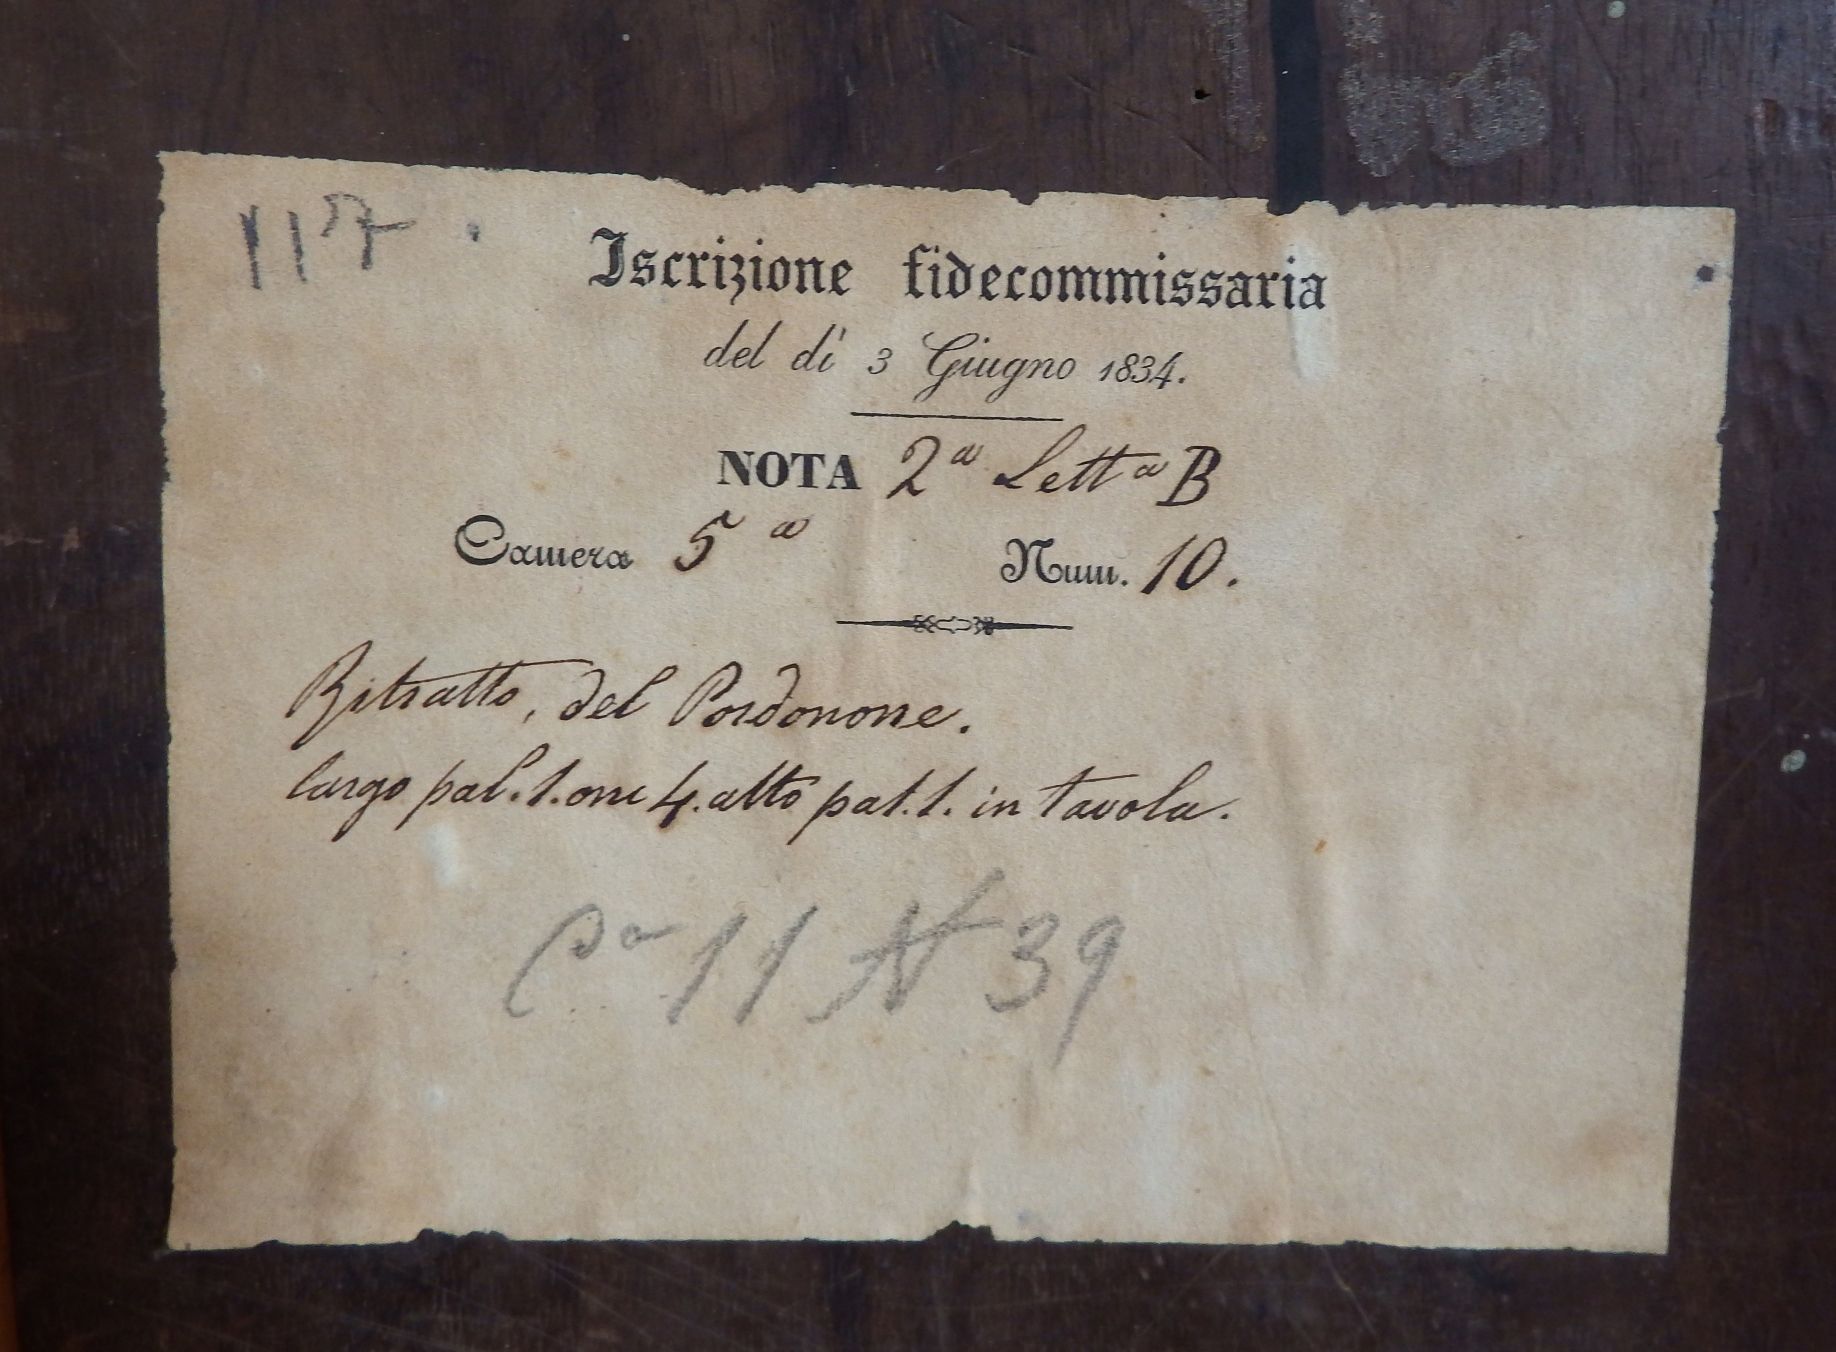 117
Iscrizione fidecommissaria
del dì 3 Giugno 1834.
NOTA 2ª Lettª B
Camera 5ª Num. 10.
Ritratto, del Pordonone.
largo pal. 1. onc 4. alto pal. 1. in tavola.
Cª 11 N 39